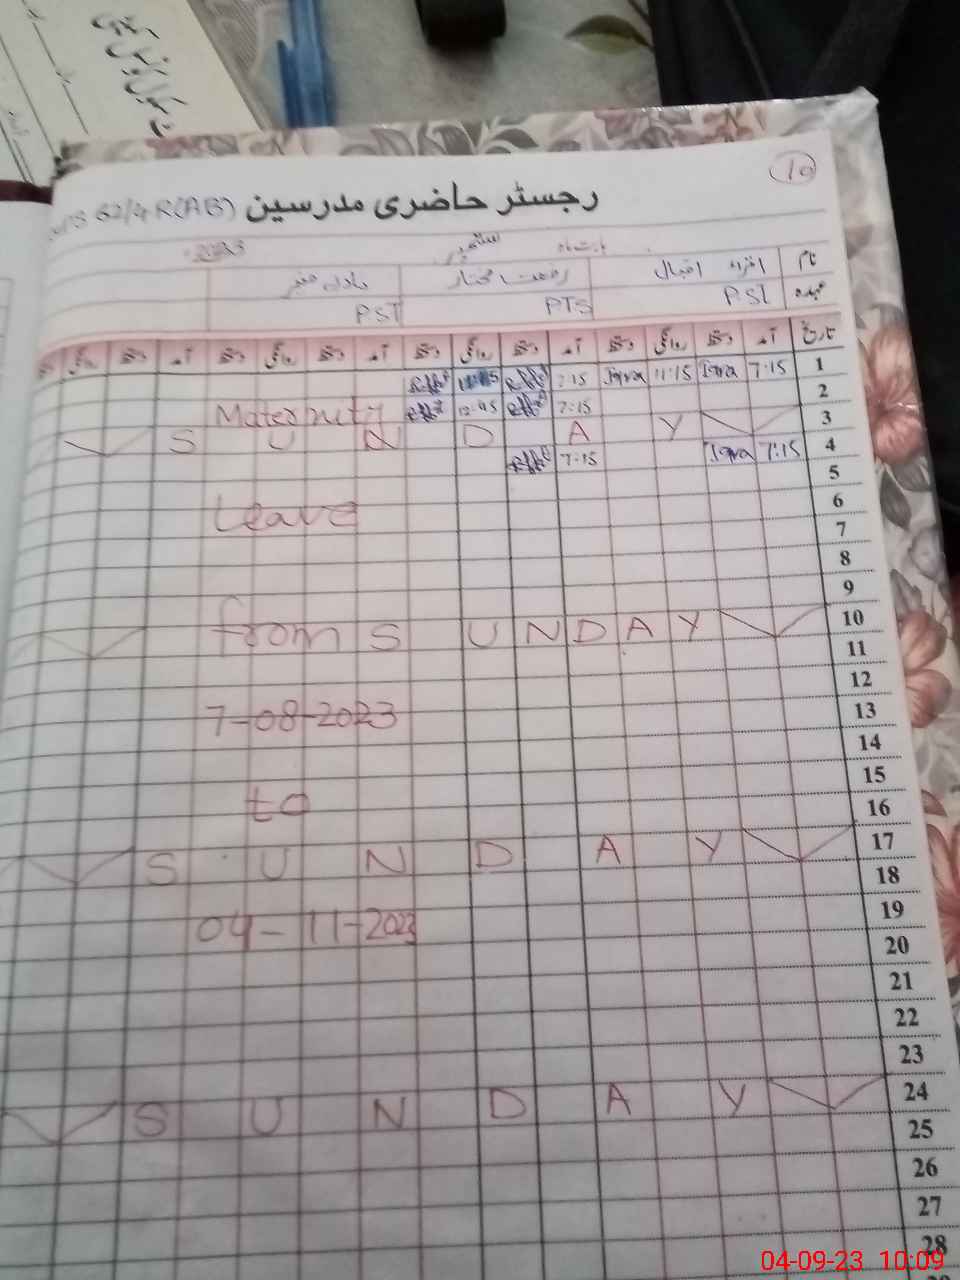 10
رجسٹر حاضری مدرسین 62/4 R(AB)
بابت ماہ ستمبر 2023
نام اقراء اقبال رفعت مختار
عہدہ PST PTS PST
تاریخ آمد دستخط روانگی دستخط آمد دستخط روانگی دستخط آمد دستخط روانگی دستخط آمد دستخط روانگی
1 7:15 Iqra 11:15 Iqra 7:15
2 7:15 12:45 Maternity
3 S U N D A Y
4 7:15 Iqra 7:15
5
6 Leave
7
8
9
10 from S U N D A Y
11
12
13 7-08-2023
14
15
16 to
17 S U N D A Y
18
19
20 04-11-2023
21
22
23
24 S U N D A Y
25
26
27
28
04-09-23 10:09